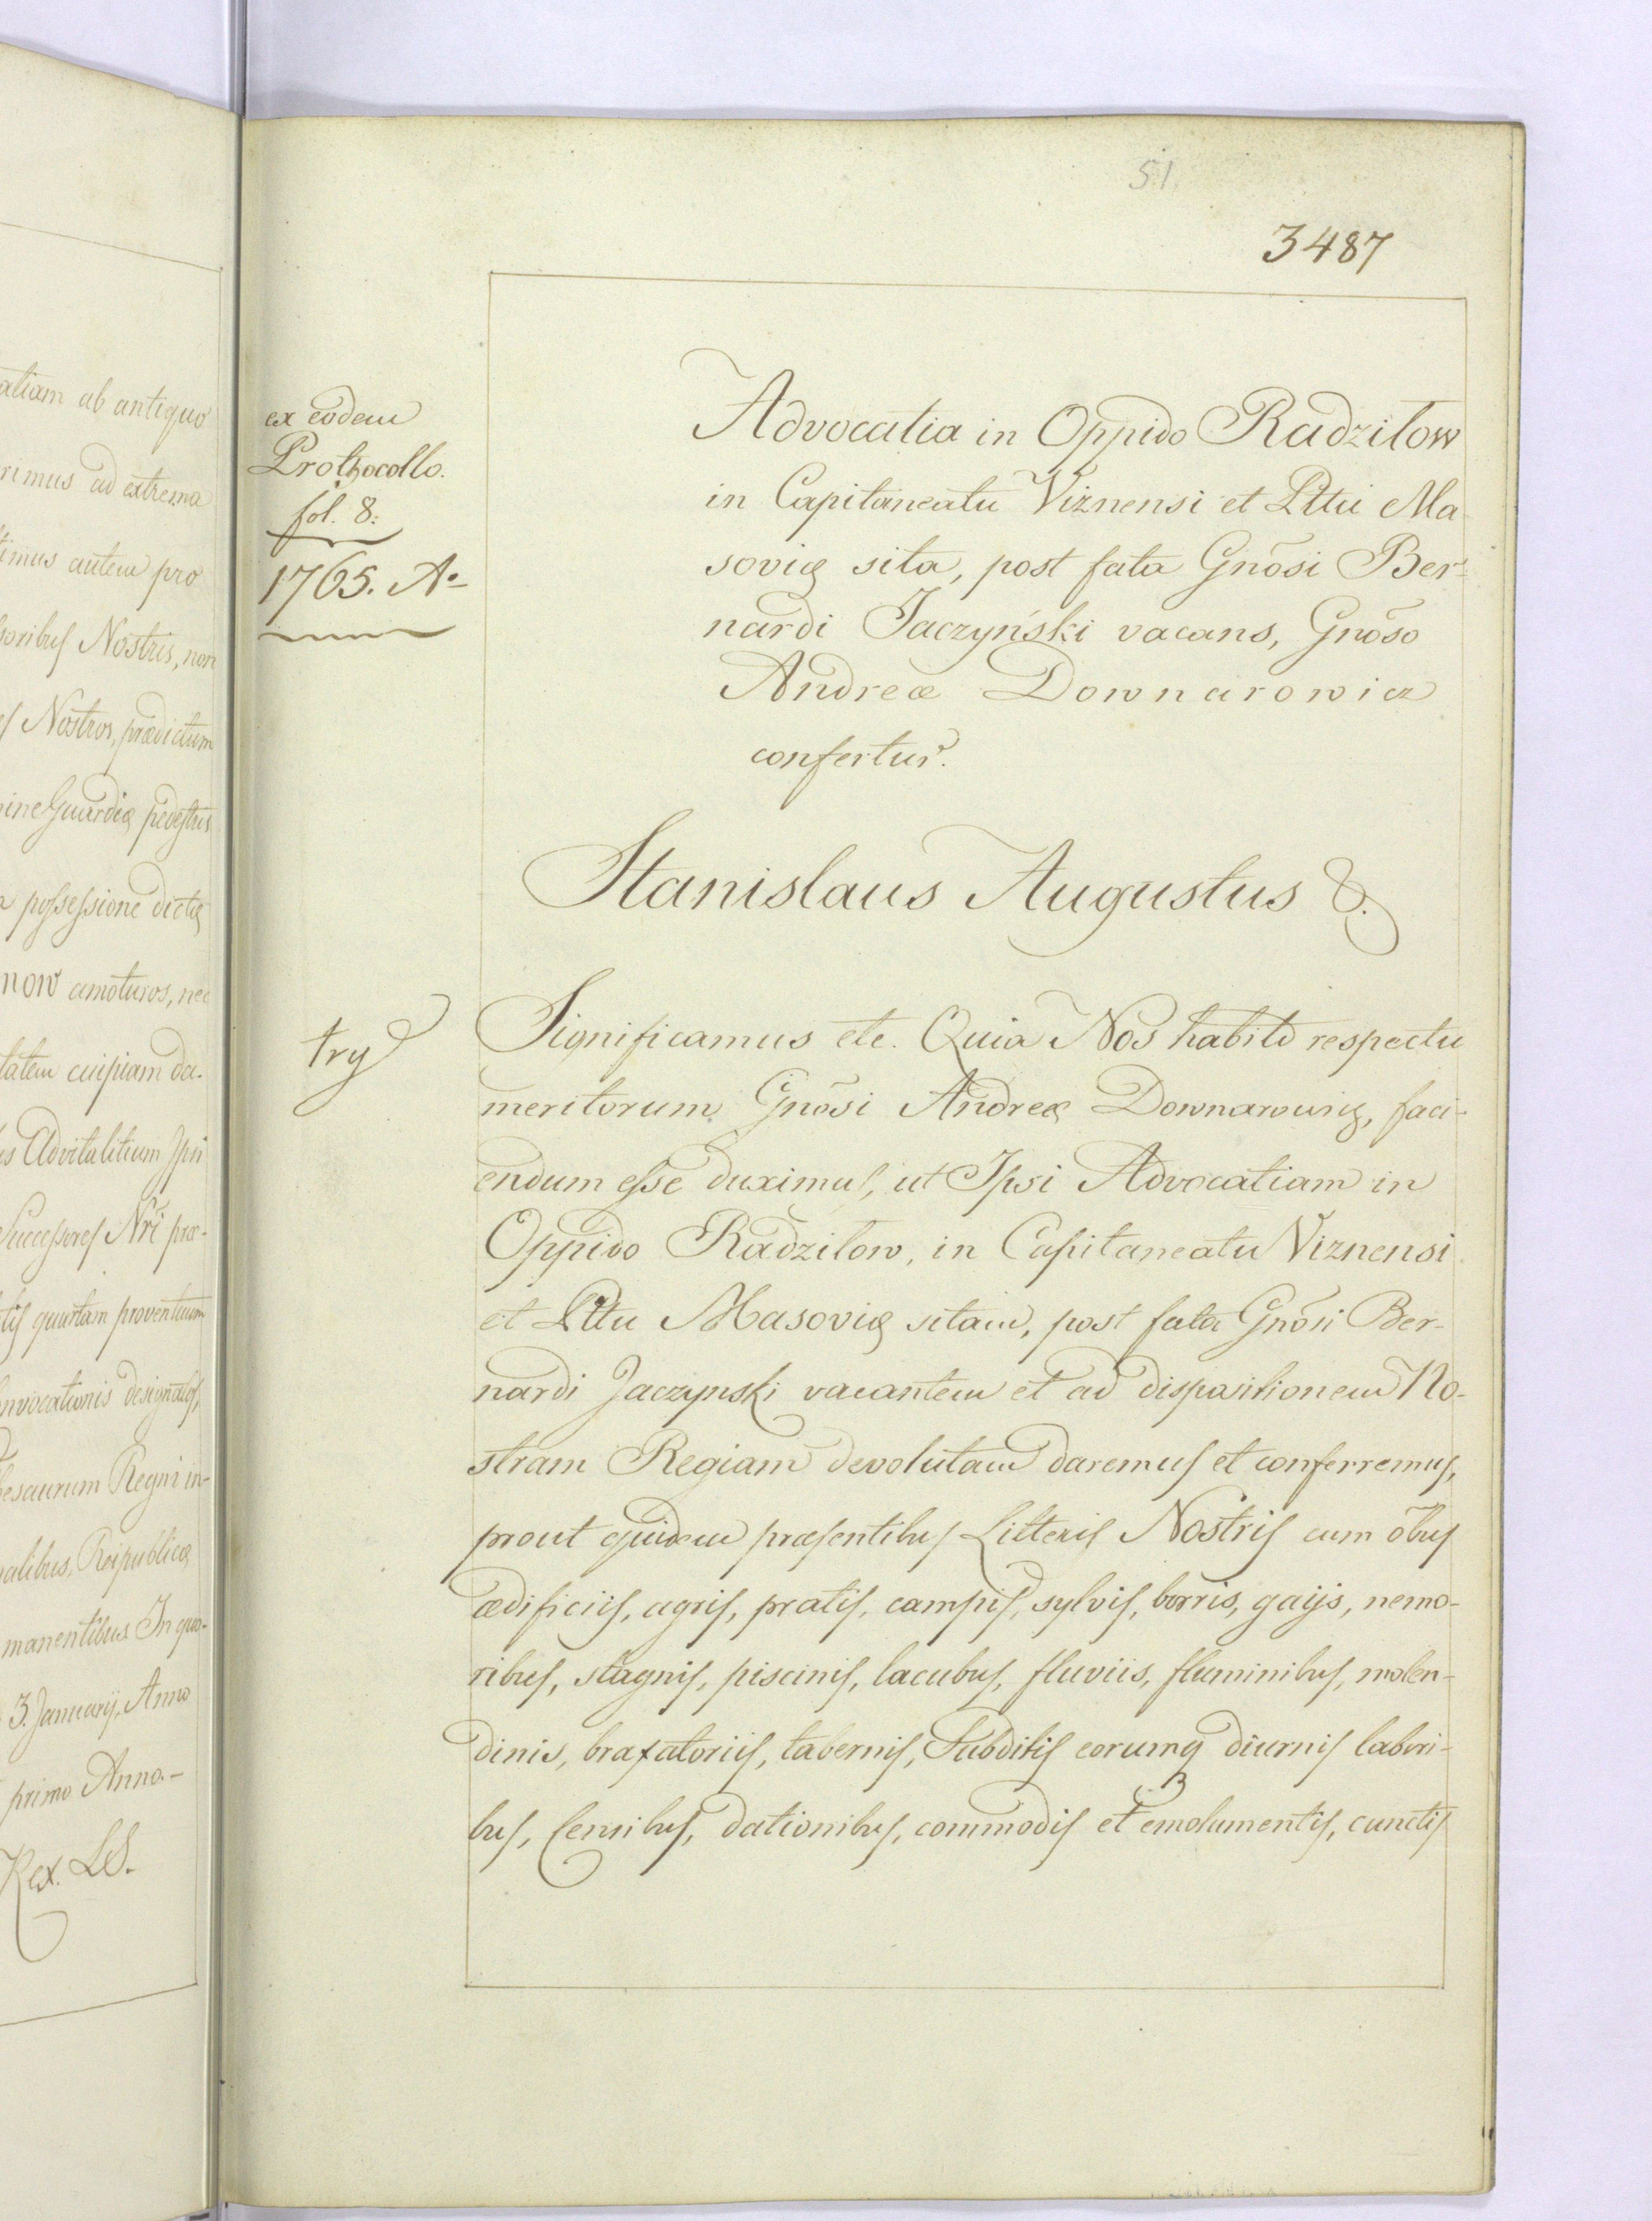 atiam ab antiquo
rimus ad extrema
timus autem pro
soribus Nostris, non
s Nostros, prædictum
ine Guardię pedestris
possessione dictę
now amoturos, nec
tatem cuipiam da-
s Advitalitium Ipsi
Successores Nr̃i præ-
tis quartam proventuum
nvocationis designatos,
hesaurum Regni in-
alibus, Reipublicę
manentibus In quo-
3. Januarij, Anno
primo Anno.-
Rex. LS.
51
3487
ex eodem
Prothocollo.
fol. 8:
1765. Aº
try
Advocatia in Oppido Radzilow
in Capitaneatu Viznensi et Pttu Ma
sovię sita, post fata Gnõsi Ber-
nardi Jaczyński vacans, Gnõso
Andreæ Downarowicz
confertur.
Stanislaus Augustus &.
Significamus etc. Quia Nos habito respectu
meritorum Gnõsi Andreę Downarowicz, faci-
endum esse duximus, ut Ipsi Advocatiam in
Oppido Radzilow, in Capitaneatu Viznensi
et Pttu Masovię sitam, post fata Gnõsi Ber-
nardi Jaczynski vacantem et ad dispositionem No-
stram Regiam devolutam daremus et conferremus,
prout quidem præsentibus Litteris Nostris cum õbus
ædificiis, agris, pratis, campis, sylvis, borris, gajis, nemo-
ribus, stagnis, piscinis, lacubus, fluviis, fluminibus, molen-
dinis, braxatoriis, tabernis, Subditis eorumq diurnis labori-
bus, Censibus, dationibus, commodis et emolumentis, cunctis